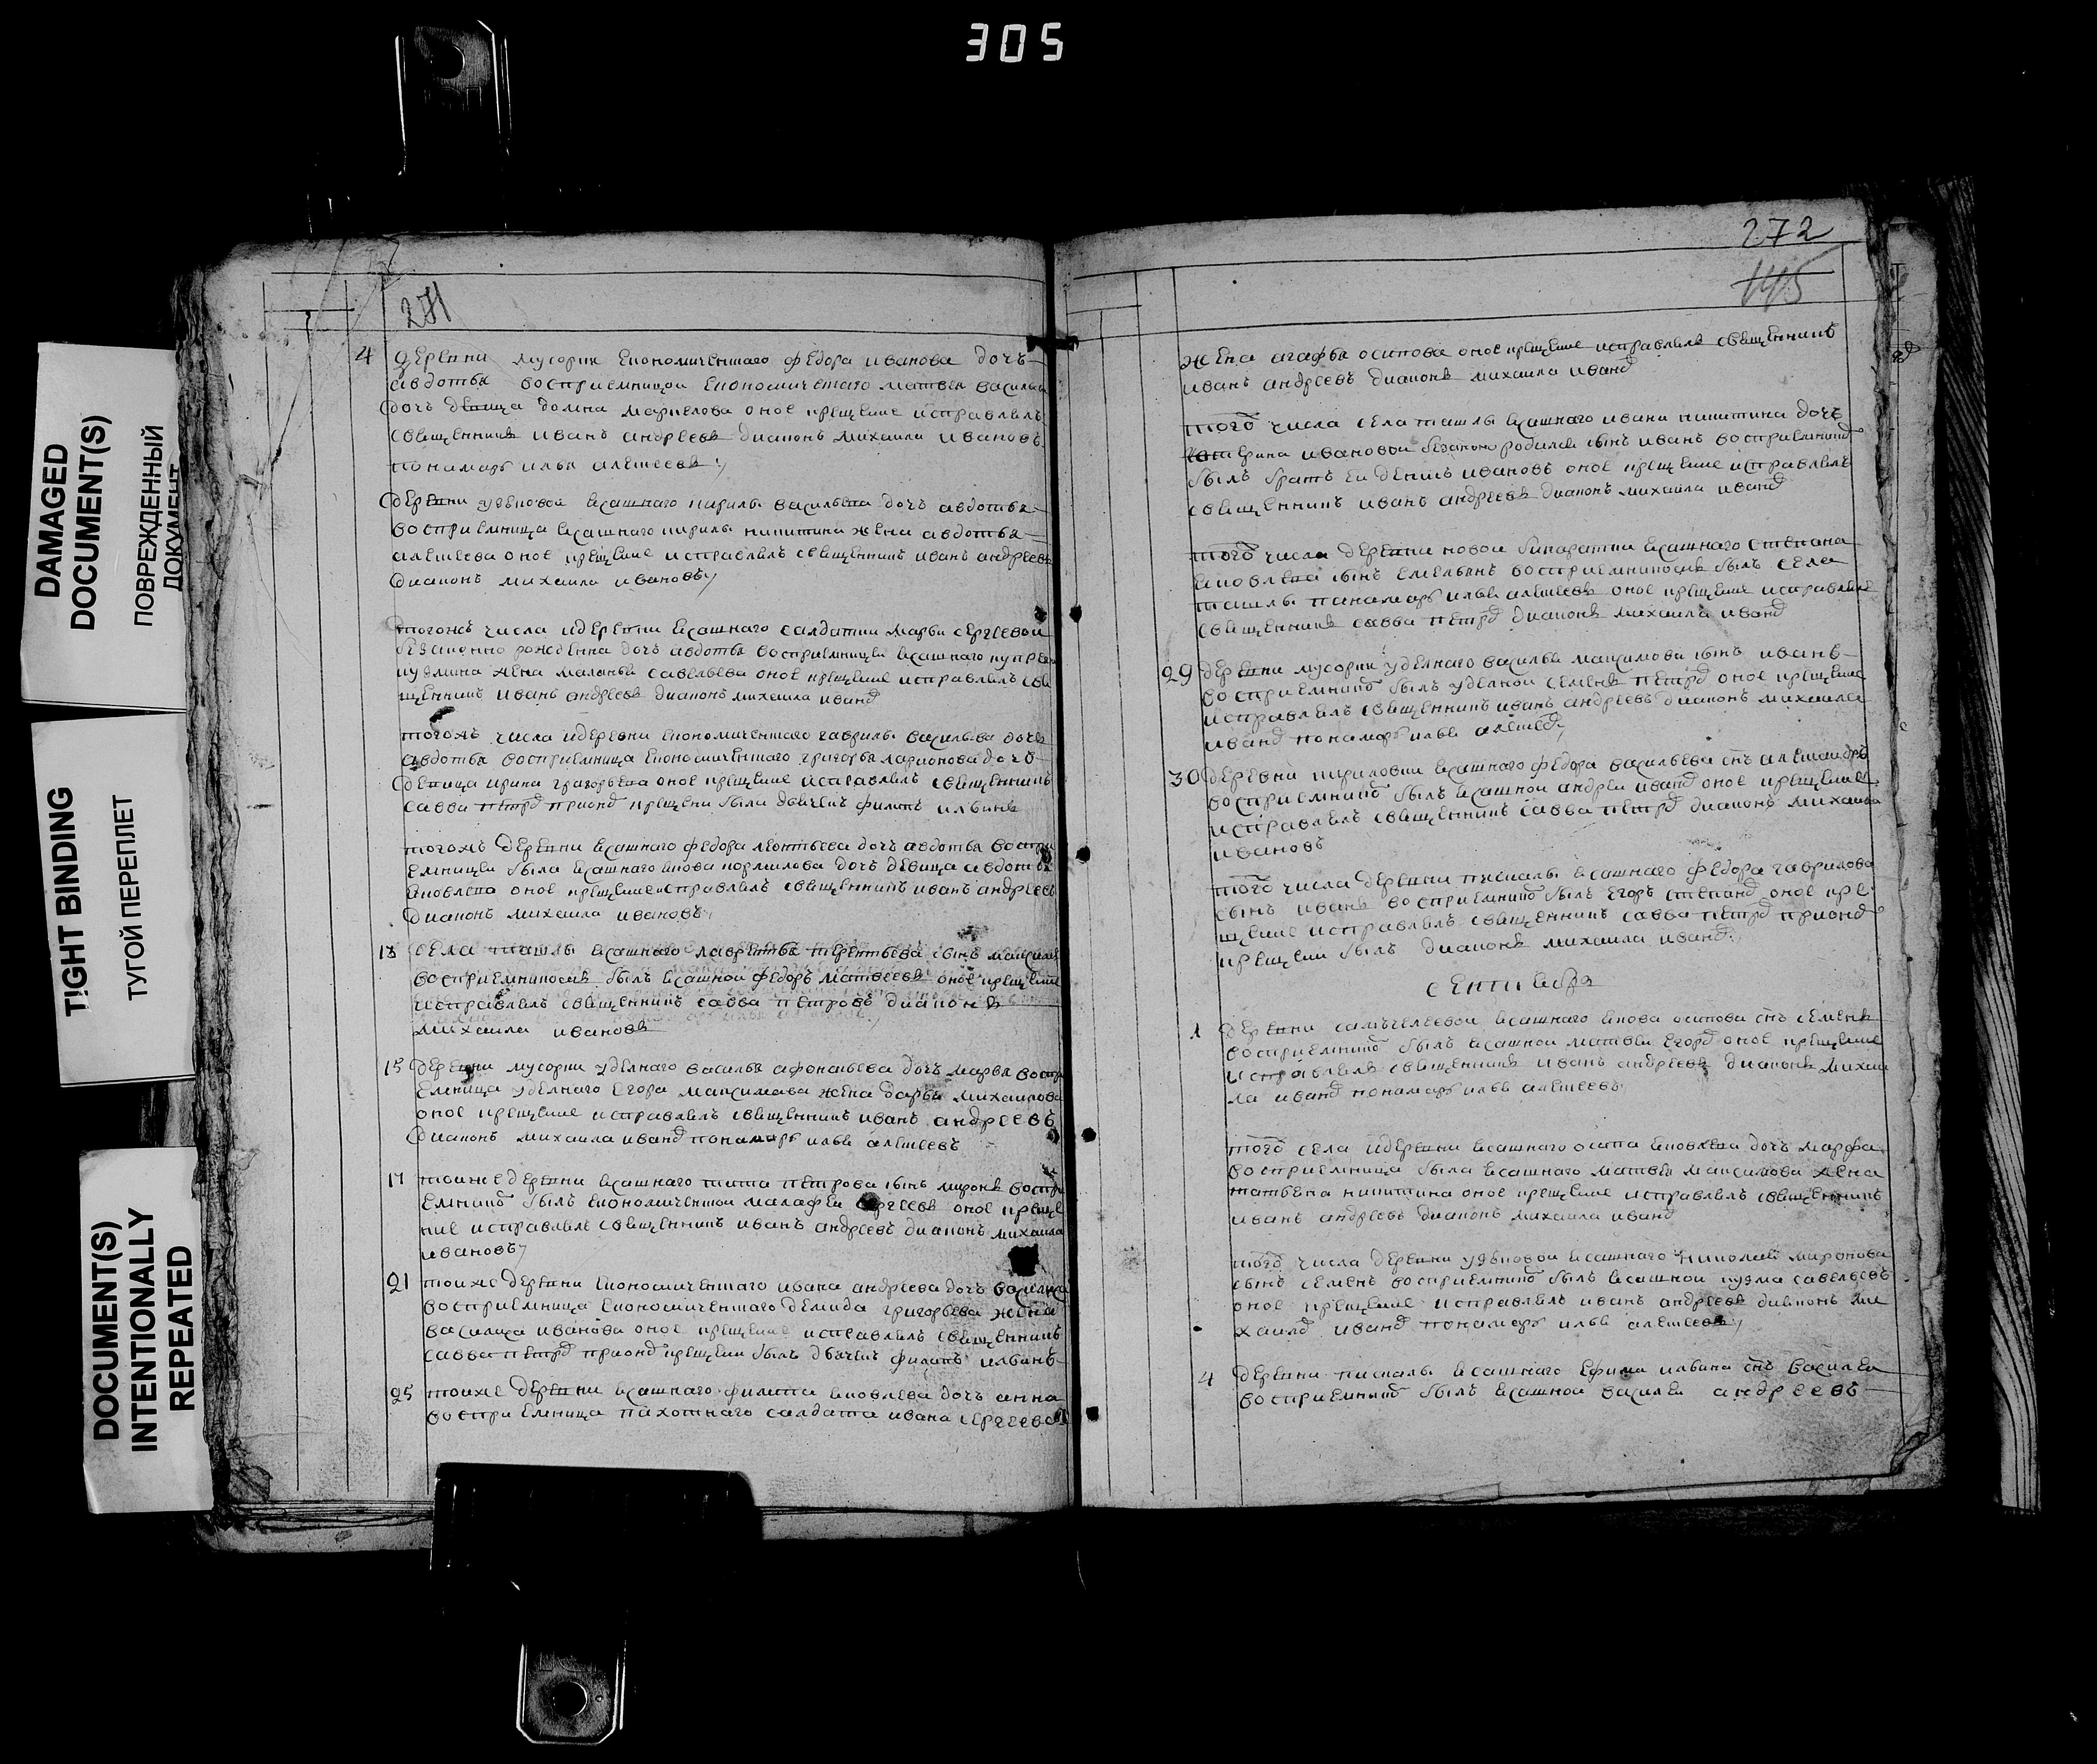 305
DAMAGED
DOCUMENT(S)
ПОВРЕЖДЕННЫЙ
ДОКУМЕНТ
TIGHT BINDING
ТУГОЙ ПЕРЕПЛЕТ
DOCUMENT(S)
INTENTIONALLY
REPEATED
271
4 деревни мусорки економическаго федора иванова дочь
авдотья восприемницои економическаго матвея василева
дочь девица домна оное крещение исправлялъ
священникъ иванъ андреевъ диаконъ михаила ивановъ
понамарь илья алексеевъ
деревни кирилы васильева дочь авдотья
восприемница ясашнаго кирилы никитина жена авдотья
алексеева оное крещение исправлялъ священникъ иванъ андреевъ
диаконъ михаила ивановъ
тогожъ числа и деревни ясашнаго салдатки марьи сергеевои
безаконно рожденна дочь авдотья восприемницеи ясашнаго
жена маланья савельева оное крещение исправлялъ свя
щенникъ иванъ андреевъ диаконъ михаила иванов
тогожъ числа и деревни економическаго гаврилы васильева дочь
авдотья восприемница економическаго григорья ларионова дочь
девица ирина григорьева оное крещение исправлялъ священникъ
савва петров при крещени были дьячекъ филипъ ильинъ
тогожъ деревни ясашнаго федора леонтьева дочь авдотья воспри
емницеи была ясашнаго якова кормилова дочь девица авдотья
яковлева оное крещение исправлялъ священникъ иванъ андреевъ
диаконъ михаила ивановъ
13 села ташлы ясашнаго лаврентья терентьева сынъ
восприемникомъ былъ ясашнои федоръ матвеевъ оное крещение
исправлялъ священникъ савва петровъ диаконъ
михаила ивановъ
15 деревни мусорки уделнаго василья афонасьева дочь марья воспри
емница уделнаго егора максимава жена дарья михаилова
оное крещение исправлялъ священникъ иванъ андреевъ
диаконъ михаила иванов понамарь илья алексеевъ
17 тоиже деревни ясашнаго тита петрова сынъ миронъ воспри
емнико былъ економическои малафеи сергеевъ оное креще
ние исправлялъ священникъ иванъ андреевъ диаконъ михаила
ивановъ
21 тоиже деревни економическаго ивана андреева дочь василиса
восприемница економическаго демида григорьева жена
василиса иванова оное крещение исправлялъ священникъ
савва петров при крещени былъ дьячекъ филипъ ильинъ
25 тоиже деревни ясашнаго филипа яковлева дочь анна
восприемница пахотнаго салдата ивана сергеева
272
145
жена агафья осипова оное крещение исправлялъ священникъ
иванъ андреевъ диаконъ михаила иванов
того числа села ташлы ясашнаго ивана никитина дочь
ивановои безаконо родился сынъ иванъ восприемнико
былъ братъ еи денисъ ивановъ оное крещение исправлялъ
священникъ иванъ андреевъ диаконъ михаила иванов
того числа деревни новои бинаратки ясашнаго степана
яковлева сынъ емельянъ восприемникомъ былъ села
ташлы панамарь илья алексеевъ оное крещение исправлялъ
священникъ савва петров диаконъ михаила иванов
29 деревни мусорки уделнаго василья максимова сынъ иванъ
восприемнико былъ уделнои семенъ петров оное крещение
исправлялъ священникъ иванъ андреевъ диаконъ михаила
иванов понамарь илья алексеев
30 деревни кириловки ясашнаго федора васильева снъ александръ
восприемнико былъ ясашнои андреи иванов оное крещение
исправлялъ священникъ савва петров диаконъ михаила
ивановъ
того числа деревни пискалы ясашнаго федора гаврилова
сынъ иванъ восприемнико былъ егоръ степанов оное кре
щение исправлялъ священникъ савва петров при
крещени былъ диаконъ михаила иванов
сентября
1 деревни ясашнаго якова осипова снъ семенъ
восприемнико былъ ясашнои матвеи егоров оное крещение
исправлялъ священникъ иванъ андреевъ диаконъ михаи
ла иванов понамарь илья алексеевъ
того села и деревни ясашнаго осипа яковлева дочь марфа
восприемница была ясашнаго матвея максимова жена
татьяна никитина оное крещение исправлялъ священникъ
иванъ андреевъ диаконъ михаила иванов
того числа деревни ясашнаго николая миронова
сынъ семенъ восприемнико былъ ясашнои кузма савельевъ
оное крещение исправлялъ иванъ андреевъ диаконъ ми
хаила иванов понамарь илья алексеевъ
4 деревни пискалы ясашнаго ефима ильина снъ василеи
восприемнико былъ ясашнои василеи андреевъ